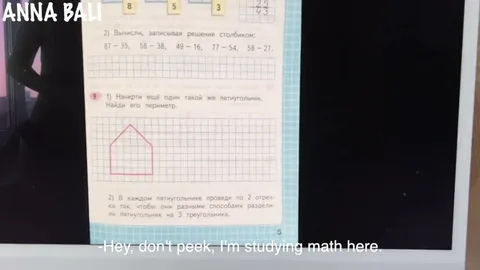 ANNA BALI
8 5 3
2) Вычисли, записывая решение столбиком:
87 − 35, 58 − 38, 49 − 16, 77 − 54, 58 − 27.
9 1) Начерти ещё один такой же пятиугольник.
Найди его периметр.
2) В каждом пятиугольнике проведи по 2 отрез-
ка так, чтобы они разными способами раздели-
ли пятиугольник на 3 треугольника.
5
-Hey, don't peek, I'm studying math here.